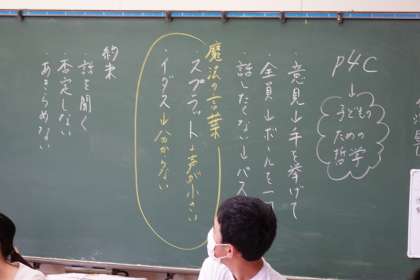 P4C
↓
子どもの
ための
哲学
・意見→手を挙げて
・全員→ボールを一
・話したくない→パス
魔法の言葉
・スプラット→声が小さい
・イダス→分からない
約束
・話を聞く
・否定しない
・あきらめない